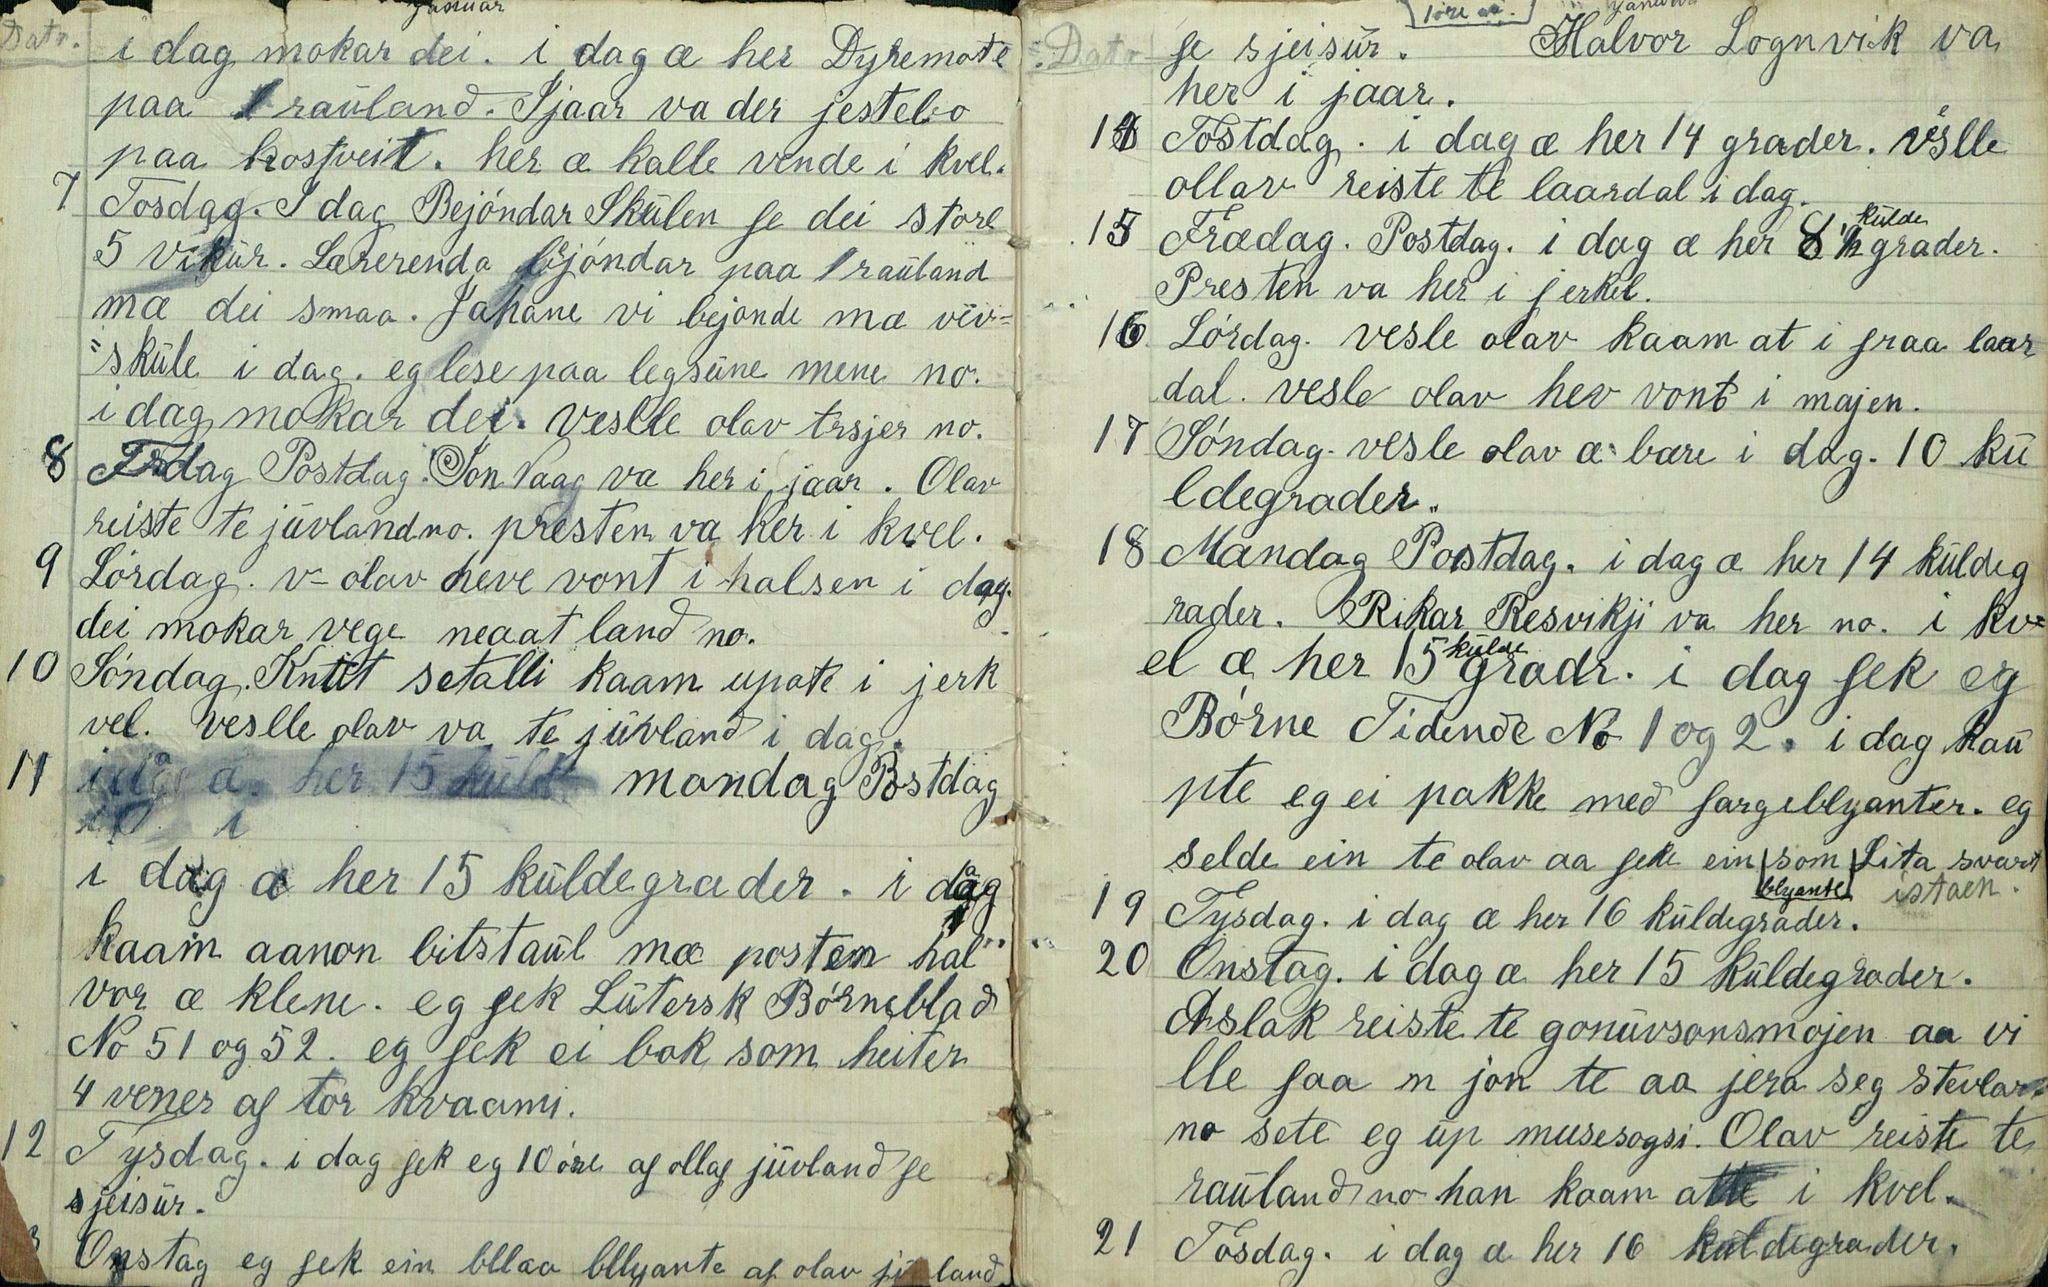 Januar
Dato.
i dag mokar dei. i dag æ her Dyremote
paa rauland. I jaar va der jestebo
paa kostveit. her æ kalle vende i kvel.
7 Tosdag. I dag Bejóndar Skülen fe dei store
5 vikür. Lærerenda bejóndar paa rauland
mæ dei smaa. Jahane vi bejonde mæ vev=
=sküle i dag. eg lese paa legsüne mene no.
i dag mokar dei. veslle olav trsjer no.
8 Frdag Postdag. Jon Vaag va her i jaar. Olav
reiste te jüvland no. presten va her i kvel.
9 Lórdag. v- olav heve vont i halsen i dag.
dei mokar vege neaat land no.
10 Sóndag. Knüt setalli kaam upate i jerk
vel. veslle olav va te jüvland i dag.
11 i dag æ her 15 külde mandag Postdag
i
i dag æ her 15 küldegrader. i dag
kaam aanon bitstaül mæ posten hal
vor æ klene. eg fek Lütersk Børneblad
No 51 og 52. eg fek ei bok som heiter
4 vener af tor kvaami.
12 Tysdag. i dag fek eg 10 óre af ollaf jüvland fe
sjeisür.
3 Onstag eg fek ein bllaa bllyante af olav jü land
1 óre
Januar
Dato
fe sjeisür. Halvor Lognvik va
her i jaar.
14 Tostdag. i dag æ her 14 grader. veslle
ollav reiste te laardal i dag.
15 Frædag. Postdag. i dag æ her 8 1/2 külde grader.
Presten va her i jerkel.
16 Lórdag. vesle olav kaam at i fraa laar
dal. vesle olav hev vont i majen.
17 Sóndag. vesle olav æ bære i dag. 10 kü
ldegrader.
18 Mandag Postdag. i dag æ her 14 küldeg
rader. Rikar Resvikji va her no. i kv=
el æ her 15 külde gradr. i dag fek eg
Bórne Tidende No 1 og 2. i dag kaü
pte eg ei pakke med fargeblyanter. eg
selde ein te olav aa fek ein blyante som Lita svart
istaen.
19 Tysdag. i dag æ her 16 küldegrader.
20 Onstag. i dag æ her 15 küldegrader.
Aslak reiste te gonüvsonsmojen aa vi
lle faa n jon te aa jera seg stevlar.
no sete eg üp musesogsi. Olav reiste te
raüland no han kaam atte i kvel.
21 Tosdag. i dag æ her 16 küldegrader.